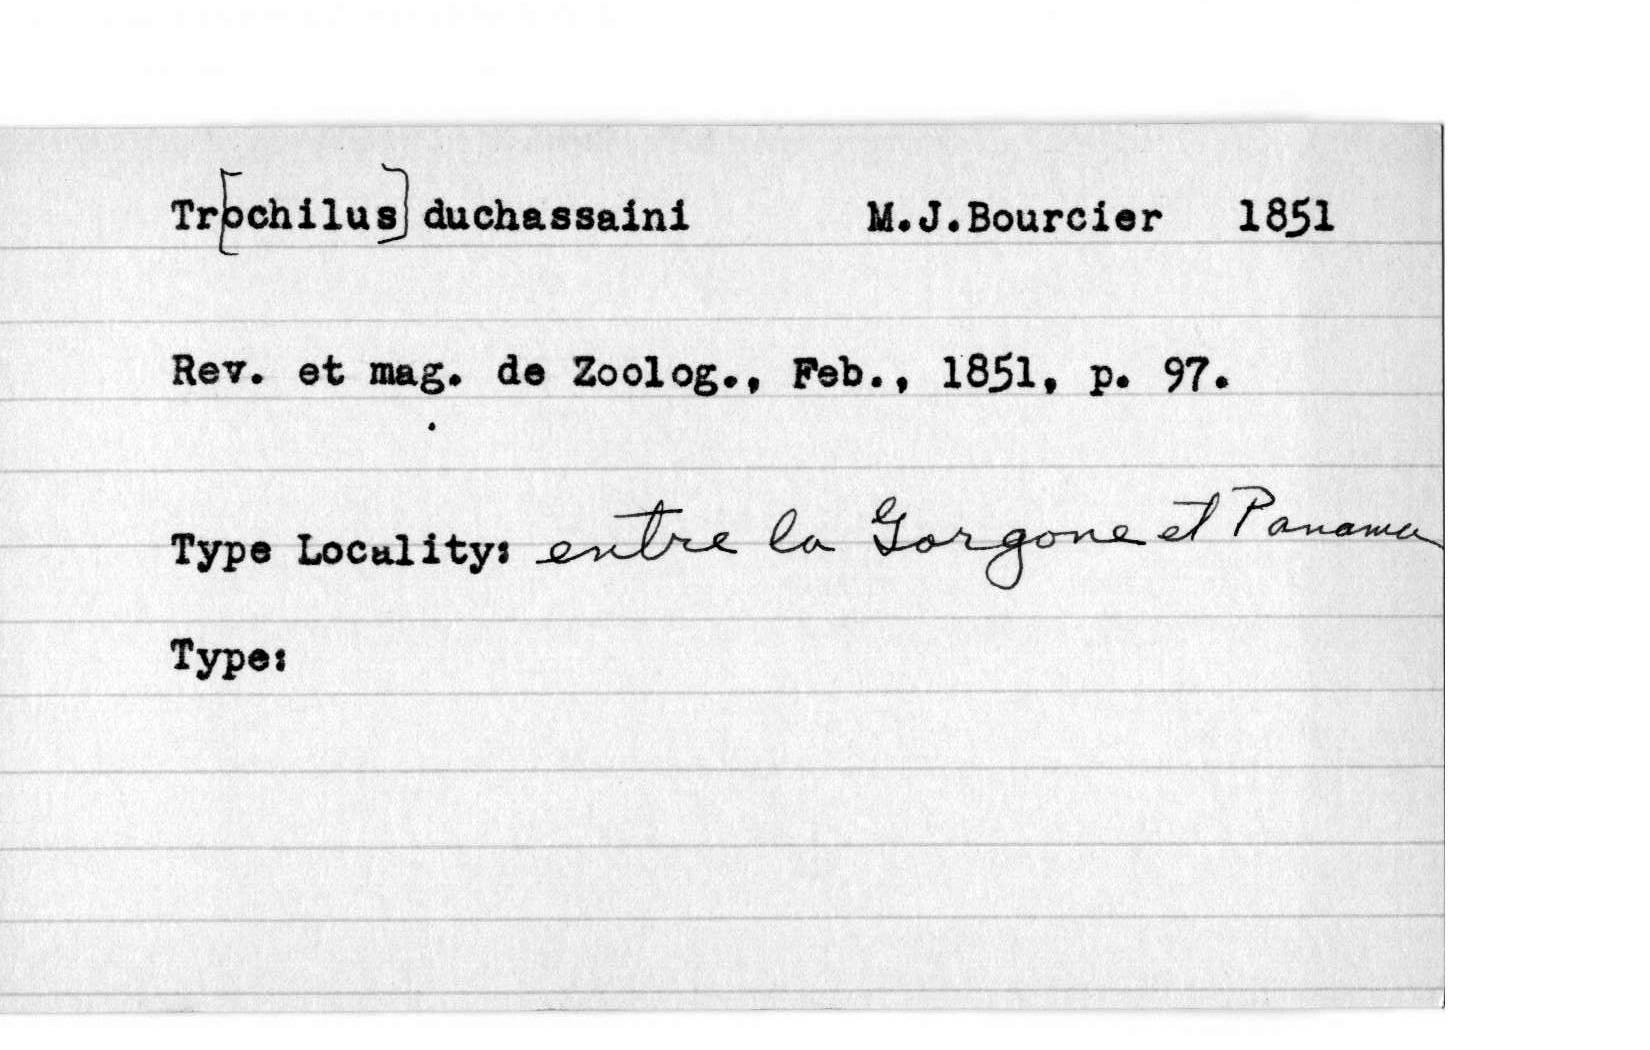 Tr[ochilus] duchassaini M.J.Bourcier 1851
Rev. et mag. de Zoolog., Feb., 1851, p. 97.
Type Locality: entre la Gorgone et Panama
Type: